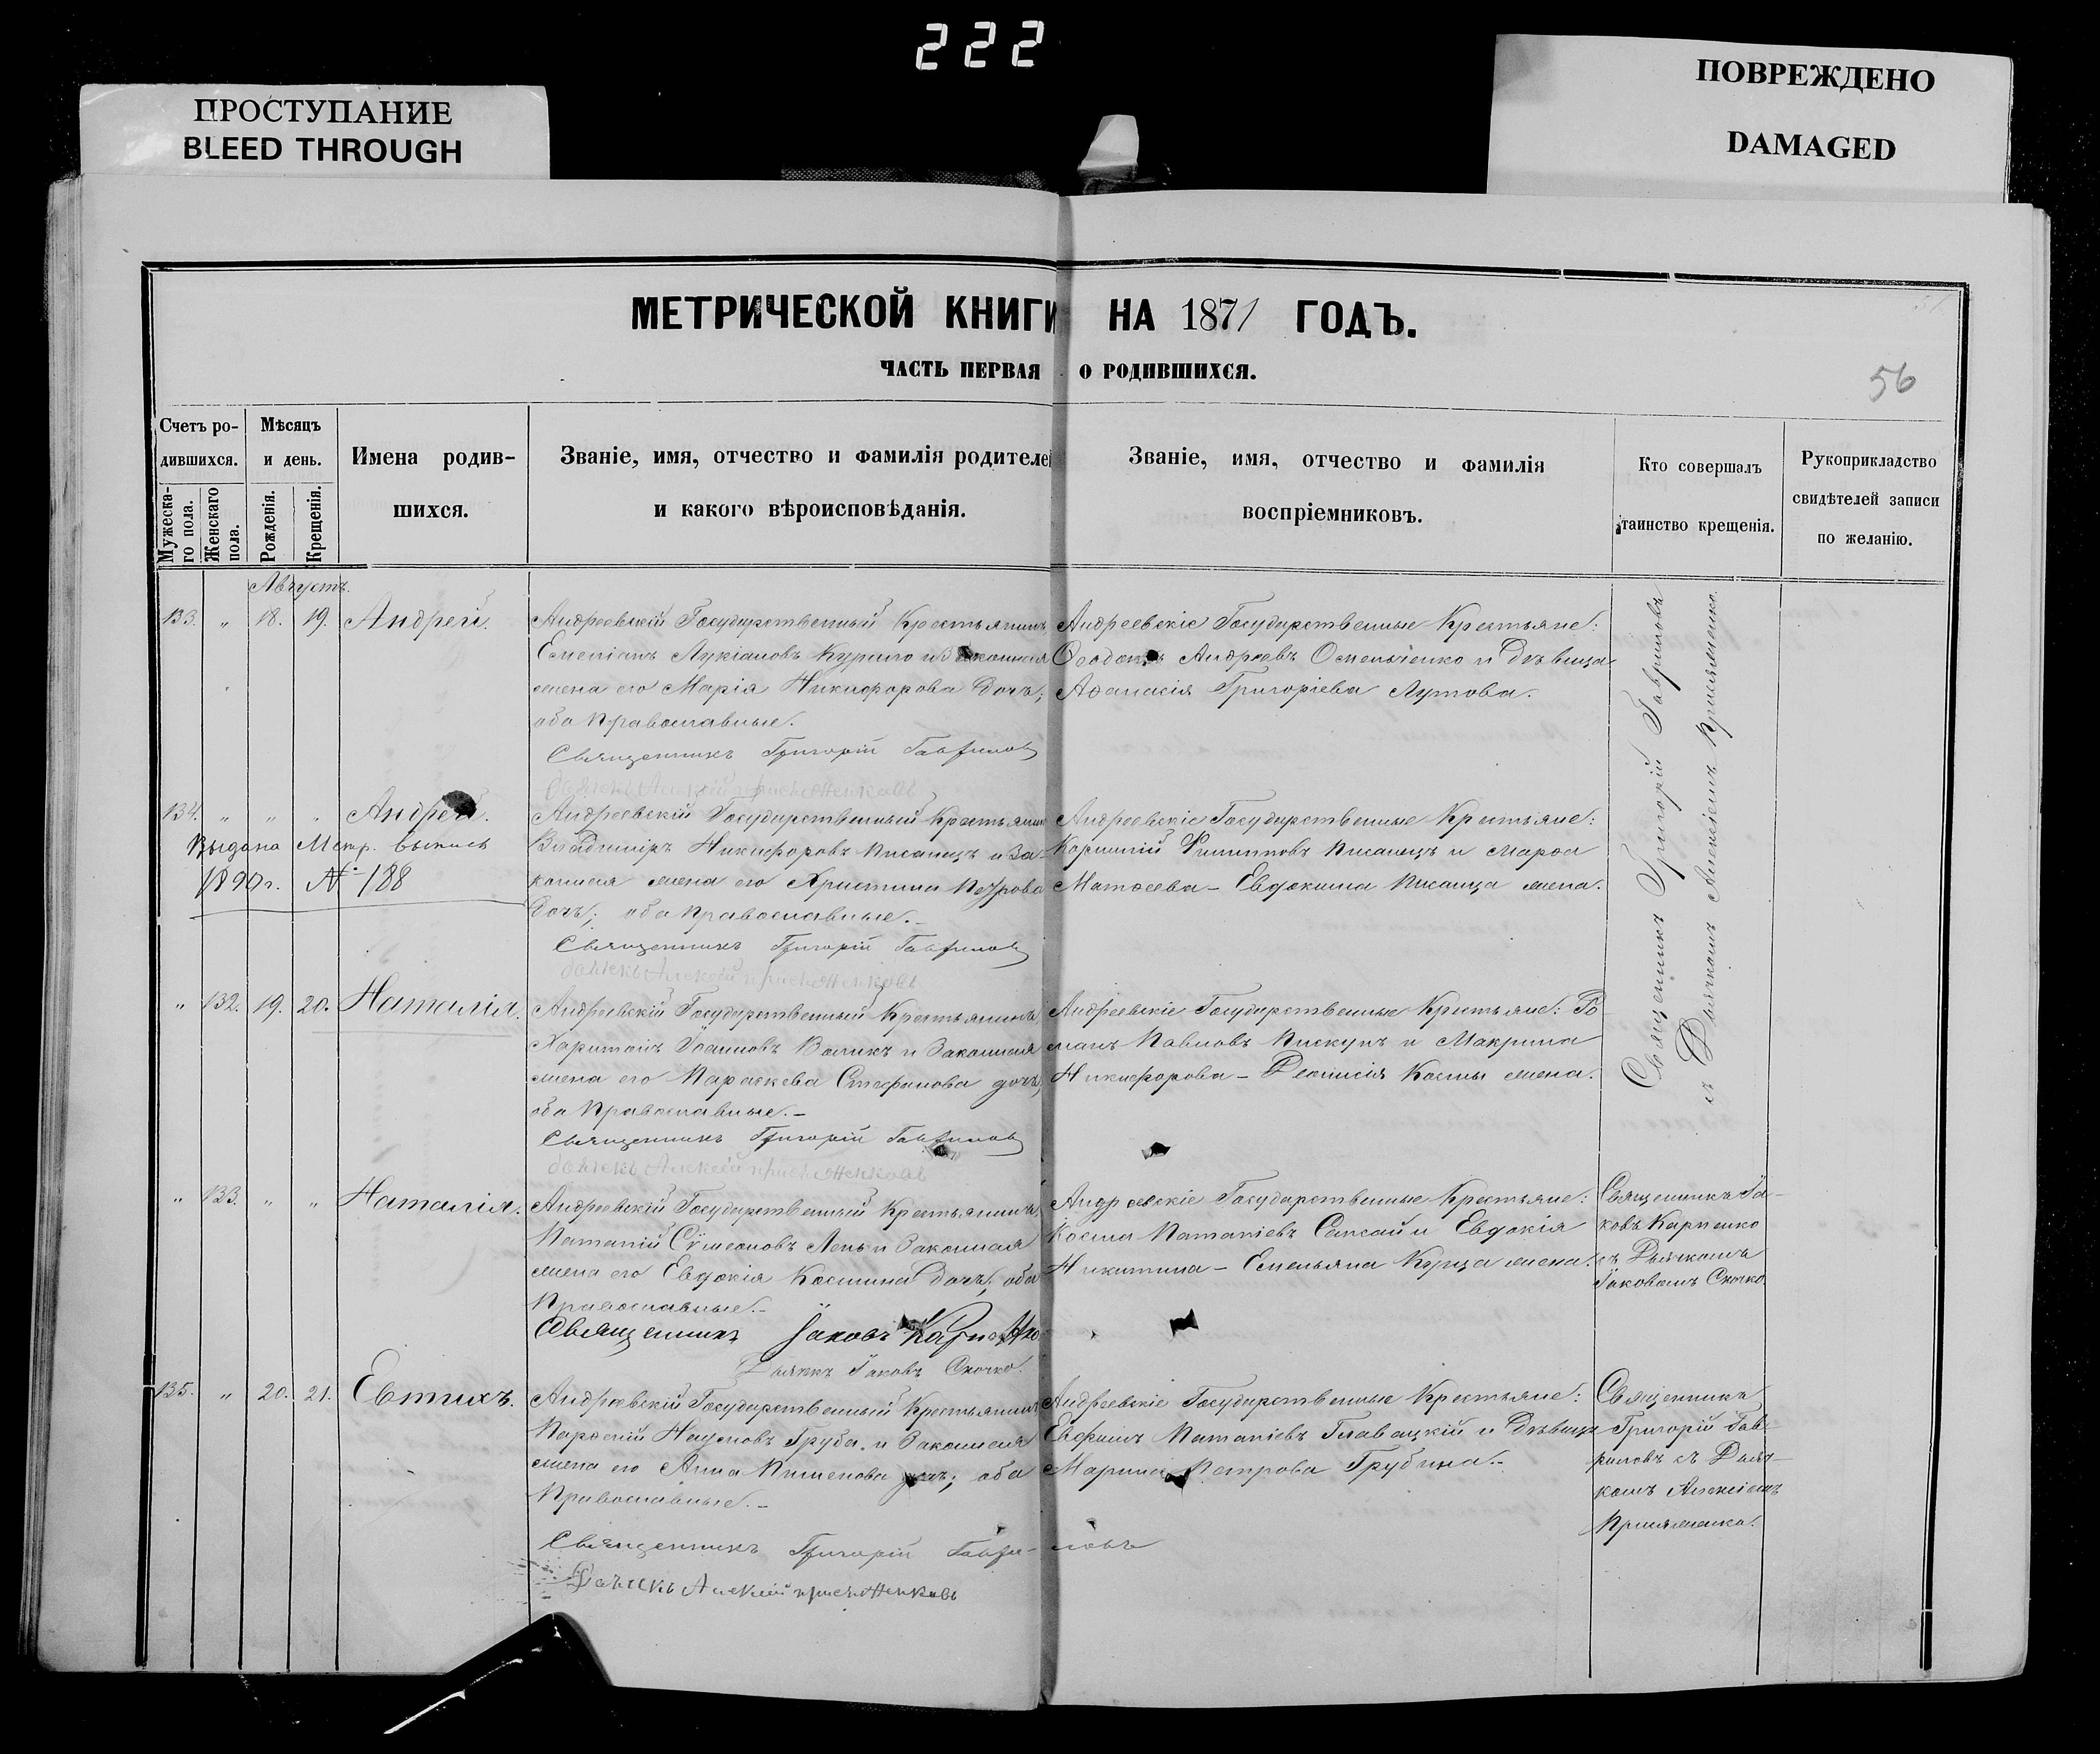 222
ПРОСТУПАНИЕ
BLEED THROUGH
ПОВРЕЖДЕНО
DAMAGED
МЕТРИЧЕСКОЙ КНИГИ НА 1871 ГОДЪ.
ЧАСТЬ ПЕРВАЯ О РОДИВШИХСЯ.
56
Счетъ ро-
дившихся.
Мужеска-
го пола.
Женскаго
пола.
Мѣсяцъ
и день.
Рожденія.
Крещенія.
Имена родив-
шихся.
Званіе, имя, отчество и фамилія родителей
и какого вѣроисповѣданія.
Званіе, имя, отчество и фамилія
воспріемниковъ.
Кто совершалъ
таинство крещенія.
Рукоприкладство
свидѣтелей записи
по желанію.
Августъ.
133. " 18. 19. Андрей.
Андреевскій Государственный Крестьянинъ
Емеліанъ Лукіановъ и Законная
жена его Марія Никифорова дочь;
оба Православные.
Священникъ Григорій Гавриловъ
Андреевскіе Государственные Крестьяне:
Андреевъ Омельченко и Дѣвица
Аѳанасія Григоріева Лутова.
Священникъ Григорій Гавриловъ
съ Дьячкомъ Алексіемъ
134. " " " Андрей.
Выдана Метр. выпись
1890г. № 188
Андреевскій Государственный Крестьянинъ
Владиміръ Никифоровъ Писанецъ и За-
конная жена его Христина Петрова
дочь; оба Православные.-
Священникъ Григорій Гавриловъ
Андреевскіе Государственные Крестьяне:
Корнилій Филипповъ Писанецъ и Марѳа
Матѳеева - Евдокима Писанца жена.
" 132. 19. 20. Наталія.
Андреевскій Государственный Крестьянинъ
Харитонъ Іоанновъ Воликъ и Законная
жена его Параскева Стефанова дочь,
оба Православные.-
Священникъ Григорій Гавриловъ
Андреевскіе Государственные Крестьяне: Ро-
манъ Павловъ Пискунъ и Макрина
Никифорова - Діонисія Космы жена.
" 133. " " Наталія.
Андреевскій Государственный Крестьянинъ
Потапій Сѵмеоновъ и Законная
жена его Евдокія Космина дочь, оба
Православные.-
Священникъ Іаковъ Карпенко
Дьячкъ Іаковъ Скочко.
Андреевскіе Государственные Крестьяне:
Косма Потапіевъ и Евдокія
Никитина - Емельяна жена.
Священникъ Іа-
ковъ Карпенко
съ Дьячкомъ
Іаковомъ Скочко
135. " 20. 21. Евтихъ.
Андреевскій Государственный Крестьянинъ
Парѳеній Наумовъ Груба и Законная
жена его Анна Пименова дочь; оба
Православные.-
Священникъ Григорій Гавриловъ
Андреевскіе Государственные Крестьяне:
Евфимъ Потапіевъ Главацкій и Дѣвица
Марина Петрова Грубина.-
Священникъ
Григорій Гав-
риловъ съ Дьяч-
комъ Алексіемъ